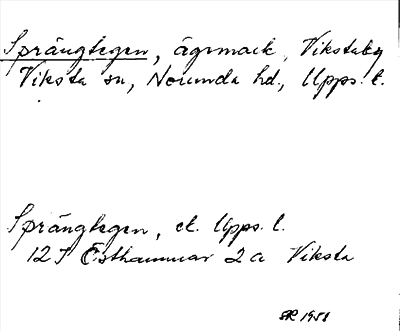 Sprängtegen, ägomark, Vikstaby
Viksta sn, Norunda hd., Upps. l.
Sprängtegen, ek. Upps. l.
12 I Östhammar 2 a Viksta
1951